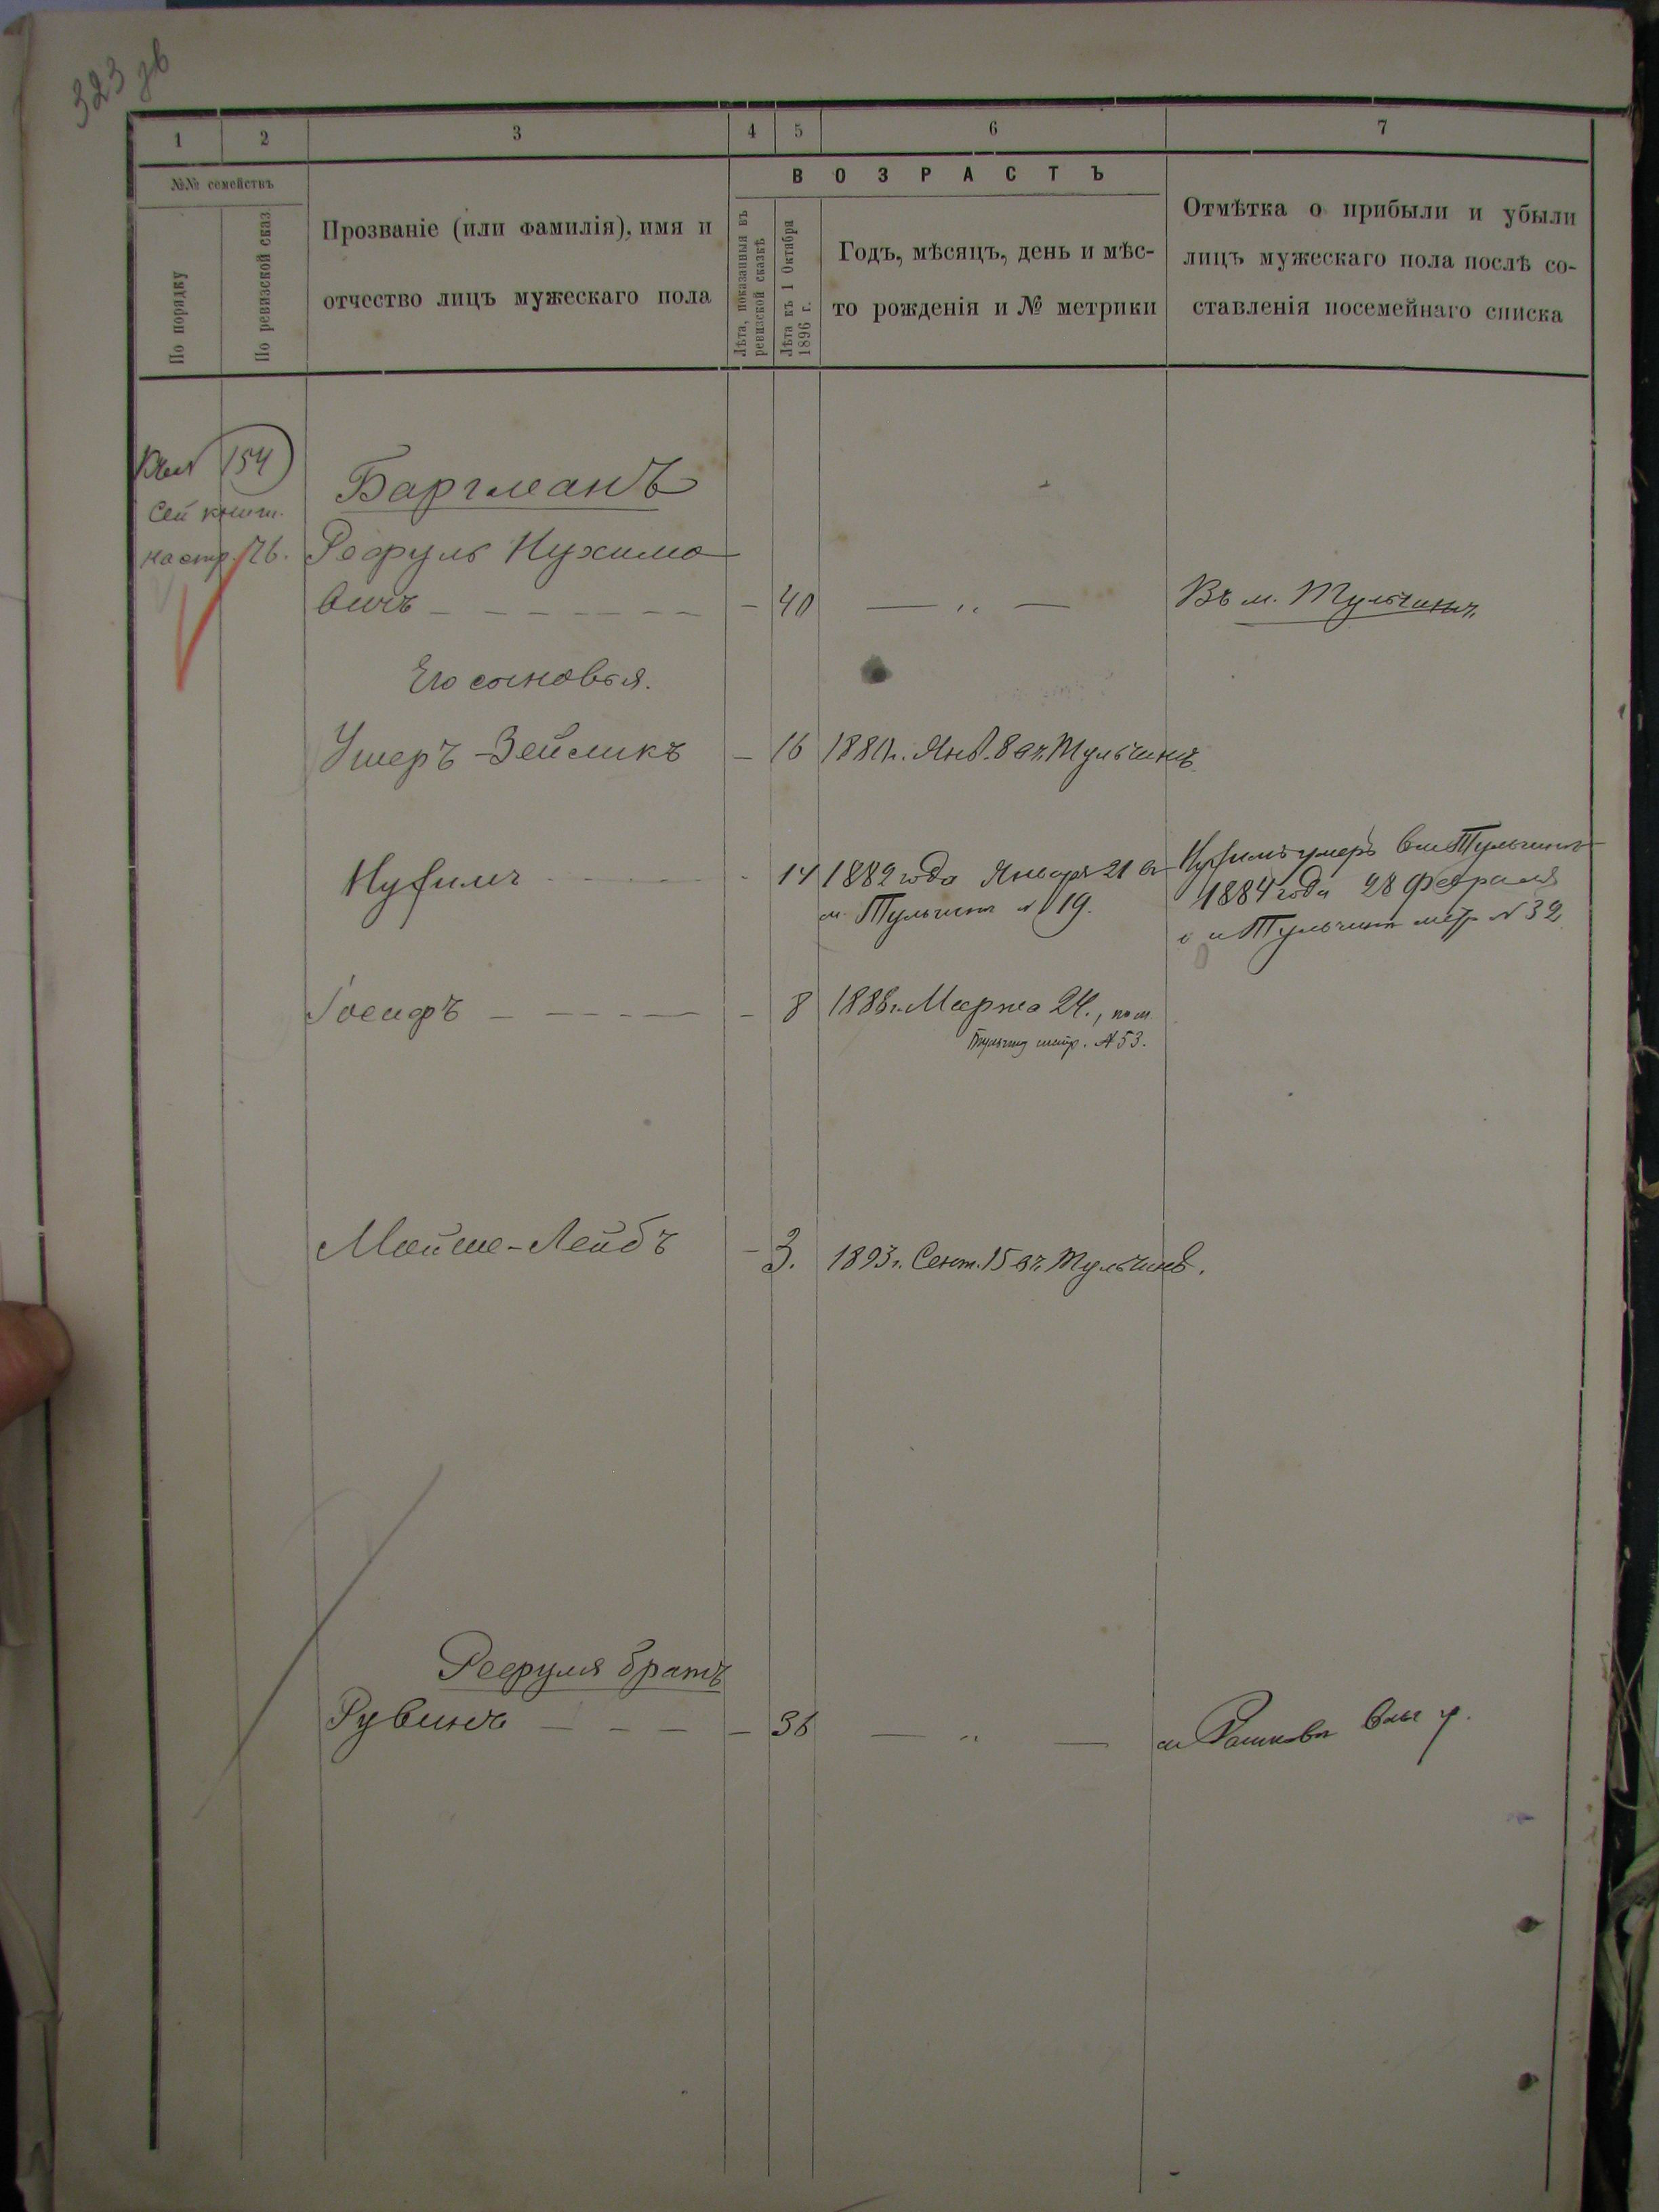 323 зв
1 2 3 4 5 6 7
№№ семействъ
По порядку
По ревизской сказ.
Прозваніе (или фамилія), имя и
отчество лицъ мужескаго пола
ВОЗРАСТЪ
Лѣта, показанныя въ
ревизской сказкѣ
Лѣта къ 1 Октября
1896 г.
Годъ, мѣсяцъ, день и мѣс-
то рожденія и № метрики
Отмѣтка о прибыли и убыли
лицъ мужескаго пола послѣ со-
ставленія посемейнаго списка
154
Баргманъ
Сей книги
на стр. 76.
Рефуль Нухимо
вичъ - 40 — „ — Въ м. Тульчинѣ
Его сыновья.
Ушеръ-Зейликъ - 16 1880г. Янв. 8 въ Тульчинѣ
Нухимъ - 14 1882 года Января 21 в
м. Тульчинѣ № 19.
Нухимъ умеръ в м Тульчинѣ
1884 года 28 Февраля
м Тульчинѣ метр № 32
Іосифъ - 8 1888г. Марта 24., по м.
Тульчину метр. № 53.
Мойше-Лейбъ - 3. 1893г. Сент. 15 въ Тульчинѣ.
Рефуля братъ
Рувинъ - 36 — „ — м Рашковъ